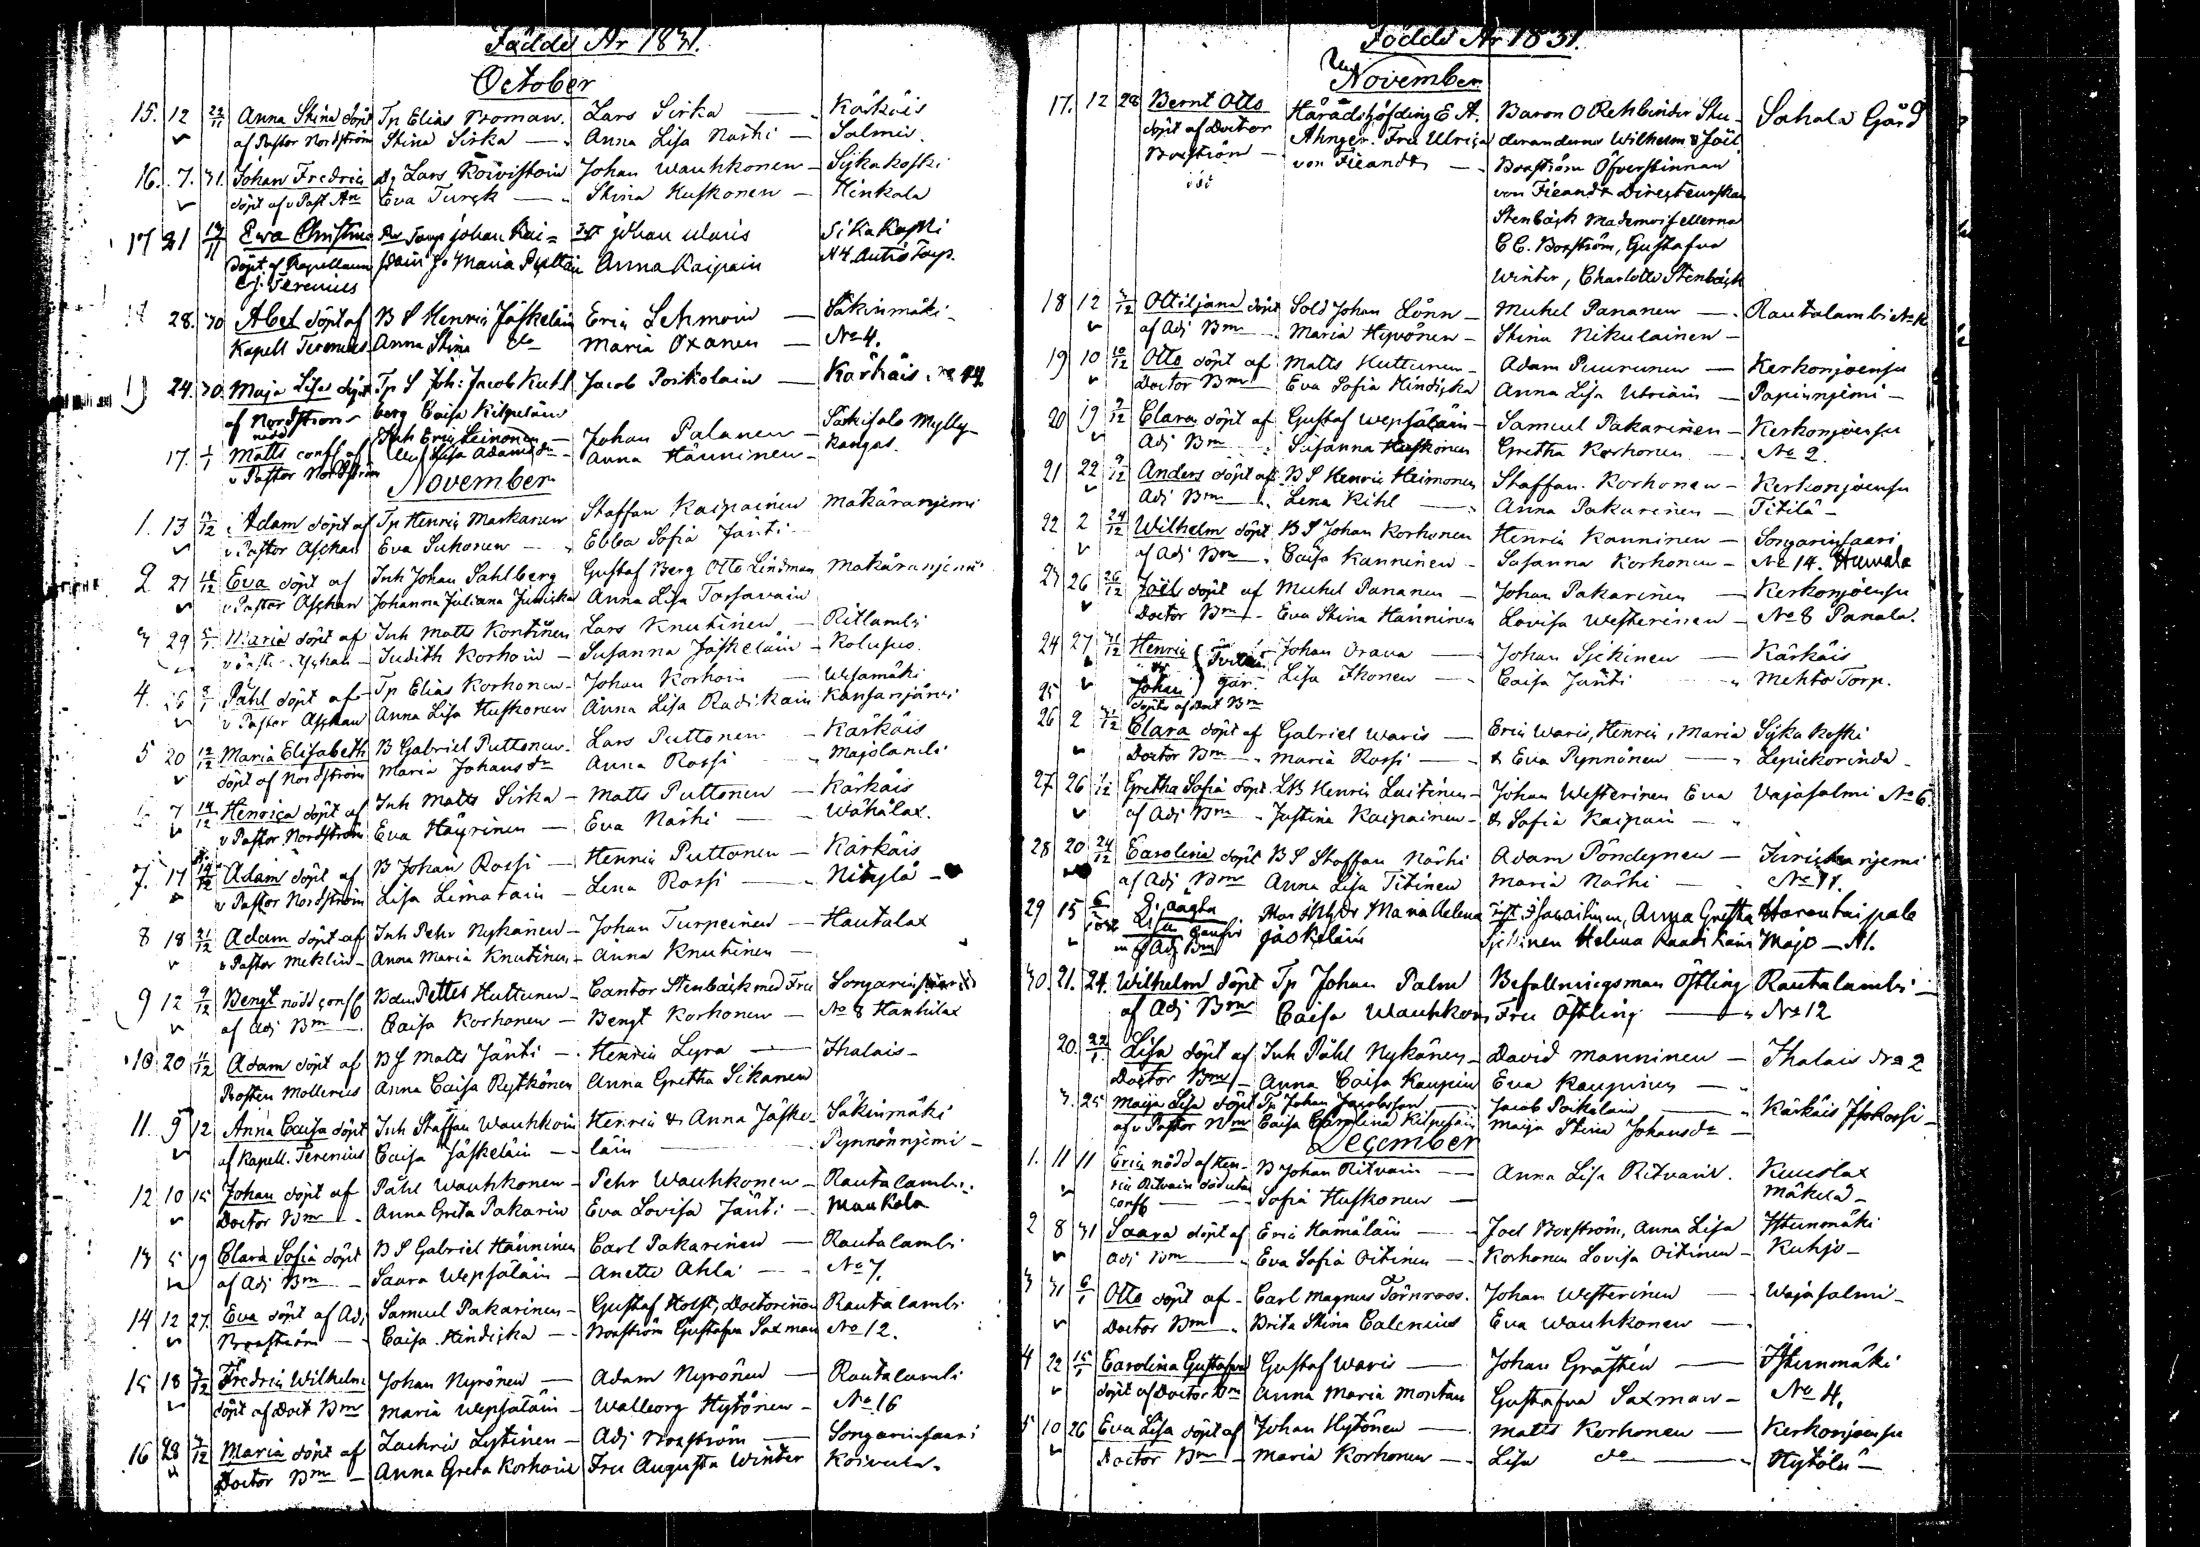 Födde År 1831.
October
15. 12 22/11 Anna Stina döpt Tp Elias Roman. Lars Sirka — Kärkäis
af Pastor Nordström Stina Sirka — Anna Lisa Närhi — Salmis.
16. 7. 31. Johan Fredric Dr Lars Koivistoin Johan Wauhkonen — Sijkakoski
döpt af v Past Eva Turck — Stina Huskonen — Hinkala
17 21 Ewa Christina Torp Johan Kai= Johan Waris Sikakoski
Döpt af Kapellanen Maria Puttain Anna Kaipain N4 Autio Torp.
C. J. Terenius
28. 30 Abel döpt af B S Henric Jäskeläin Eric Lehmoin — Säkinmäki
Kapell Terenius Anna Stina dr Maria Oxanen — No 4.
24. 30. Maja Lisa döpt Tp S Joh: Jacob Kuhl Jacob Poikolain — Kärkäis No 14
af Nordström berg Caisa Kilpeläin
17. 1/1 Matts nödd conf af Inh Eric Leinonen — Johan Palanen — Säkisalo Mylly
v Pastor Nordström Lisa Adamsdr — Anna Hänninen — kangas.
November
1. 13 Adam döpt af Tp Henric Markanen Staffan Kaipainen Makäranjemi
v Pastor Aschan Eva Suhonen — Ebba Sofia Jänti
2 21 18/12 Eva döpt af Inh Johan Sahlberg Gustaf Berg Otto Lindman Makäranjemi
v Pastor Aschan Johanna Juliana Anna Lisa Torsavain
3 29 Maria döpt af Inh Matts Kontinen Lars Knutinen — Pitlambi
Aschan — Judith Korhoin — Susanna Jäskeläin — Kolusuo.
4. Påhl döpt af Tp Elias Korhonen — Johan Korhoin — Wesamäki
v Pastor Aschan Anna Lisa Huskonen Anna Lisa Radikain Kansanjärvi
5 20 12/12 Maria Elisabeth B Gabriel Puttonen. Lars Puttonen Kärkäis
döpt af Nordström Maria Johansdr Anna Rossi Majolambi
7 14/12 Henrica döpt af Inh Matts Sirka — Matts Puttonen — Kärkäis
v Pastor Nordström Eva Häyrinen — Eva Närhi — Wähälax.
7. 17 Adam döpt af B Johan Rossi — Henric Puttonen — Kärkäis
v Pastor Nordström Lisa Limatain — Lena Rossi — Nitylä —
8 18 21/12 Adam döpt af Inh Pehr Nykänen — Johan Turpeinen — Hautalax
v Pastor Meklin — Anna Maria Knutinen — Anna Knutinen —
9 12 9/12 Bengt nödd conf Bdn Petter Huttunen — Cantor Stenbäck med Fru Songarinsaari
af Adj Bm Caisa Korhonen — Bengt Korhonen — No 8 Hankilax
10 20 11/12 Adam döpt af B S Matts Jänti — Henric Lyra — Ithalais —
Prosten Mollerius Anna Caisa Rytkönen Anna Gretha Sikanen
11. 9 12 Anna Caisa döpt Inh Staffan Wauhkoin Henric & Anna Jäske Säkinmäki
af Kapell. Terenius Caisa Jäskeläin — läin Pynnönnjemi —
12 10 15 Johan döpt af Påhl Wauhkonen — Pehr Wauhkonen — Rautalambi.
Doctor Bm Anna Greta Pakarin Eva Lovisa Jänti — Maukola
13 5 19 Clara Sofia döpt B S Gabriel Hänninen Carl Pakarinen — Rautalambi
af Adj Bm Saara Wepsäläin — Anette Ahla — No 7.
14 12 27. Eva döpt af Adj Samuel Pakarinen — Gustaf Holst, Doctorinnan Rautalambi
Boxström — Caisa Hindicka — Boxström Gustafva Saxman No 12.
15 18 3/12 Fredric Wilhelm Johan Nyrönen — Adam Nyrönen — Rautalambi
döpt af Doct Bm Maria Wepsäläin — Walborg Hytönen — No 16
16 28 Maria döpt af Zachris Lytinen — Adj Boxström — Songarinsaari
Doctor Bm — Anna Greta Korhoin Fru Augusta Winter Koivula.
Födde År 1831.
November
17. 12 28 Bernt Otto Häradshöfding E A. Baron O Rehbinder Stu- Sahala Gård
döpt af Doctor Ahnger. Fru Ulrica deranderne Wilhelm & Joël
Boxström — von Fieandt — Boxström Öfverstinnan
von Fieandt Directeurskan
Stenbäck Mademoisellerna
C C. Boxström, Gustafva
Winter, Charlotte Stenbäck
18 12 3/12 Ottiljana döpt Sold Johan Lönn — Mickel Pananen — Rautalambi No
af Adj Bm Maria Hyvönen — Stina Nikulainen —
19 10 10/12 Otto döpt af Matts Huttunen — Adam Puurunen — Kerkonjoensu
Doctor Bm — Eva Sofia Hindicka Anna Lisa Utriain — Papinnjemi —
20 19 9/12 Clara döpt af Gustaf Wepsäläin — Samuel Pakarinen — Kerkonjoensu
Adj Bm Susanna Huskonen Gretha Korhonen No 2.
21 22 9/12 Anders döpt af B S Henric Heimonen Staffan Korhonen — Kerkonjoensu
Adj Bm Lena Kihl — Anna Pakarinen — Titilä —
22 2 24/12 Wilhelm döpt B S Johan Korhonen Henric Kanninen — Songarinsaari
af Adj Bm. Caisa Kanninen — Susanna Korhonen — No 14. Huvala
23 26 26/12 Joël döpt af Mickel Pananen — Johan Pakarinen — Kerkonjoensu
Doctor Bm — Eva Stina Hänninen Lovisa Westerinen — No 8 Panala.
24 27 31/12 Henric Tvillin Johan Orava — Johan Sjikinen — Kärkäis
25 Johan gar. Lisa Ikonen — Caisa Jänti — Mehto Torp.
döpte af Doct Bm
26 2 Clara döpt af Gabriel Waris — Eric Waris, Henric, Maria Sijkakoski
Doctor Bm — Maria Rossi — & Eva Pynnönen — Lepickorinda —
27 26 Gretha Sofia döpt LB Henric Laitinen — Johan Westerinen Eva Wajasalmi No 6.
af Adj Bm — Justina Kaipainen — & Sofia Kaipain —
28 20 24/12 Carolina döpt B S Staffan Närhi Adam Pöndynen —
af Adj Bm Anna Lisa Titinen Maria Närhi — No 11.
29 15 O. äägta Maria Helena Anna Gretha Harautaipale
Lisa Jäskeläin Sjikinen Helena Raadikain Majo — A1.
af Adj Bm
30 21. 24. Wilhelm döpt Tp Johan Palm Befallningsman Östling Rautalambi
af Adj Bm Caisa Wauhkon Fru Östling — No 12
20. 22/1. Lisa döpt af Inh Påhl Nykänen — David Manninen — Ithalais No 2
Doctor Bm — Anna Caisa Kaupin Eva Kaupinen —
3. 25 Maija Lisa döpt Tp Johan Jacobsson — Jacob Poikolain — Kärkäis
af v Pastor Nm Caisa Carolina Kilpeläin Maija Stina Johansdr —
December
1. 11 11 Eric nödd af Hen- B Johan Ritvain — Anna Lisa Ritvain. Kuuslax
ric Ritvain död utan Sofia Huskonen — Mäkelä —
conf
2 8 31 Saara döpt af Eric Hämäläin — Joel Boxström, Anna Lisa Istunmäki
Adj Bm Eva Sofia Oitinen — Korhonen Lovisa Oitinen — Kuhjo —
3 31 6/1 Otto döpt af Carl Magnus Törnroos. Johan Westerinen — Wajasalmi —
Doctor Bm. Brita Stina Calenius Eva Wauhkonen —
4 22 15/1 Carolina Gustafva Gustaf Waris — Johan Gråsten — Istunmäki
döpt af Doctor Bm Anna Maria Montan Gustafva Saxman — No 4.
5 10 26 Eva Lisa döpt af Johan Hytönen — Matts Korhonen — Kerkonjoensu
Doctor Bm — Maria Korhonen — Lisa dr — Hytölä —